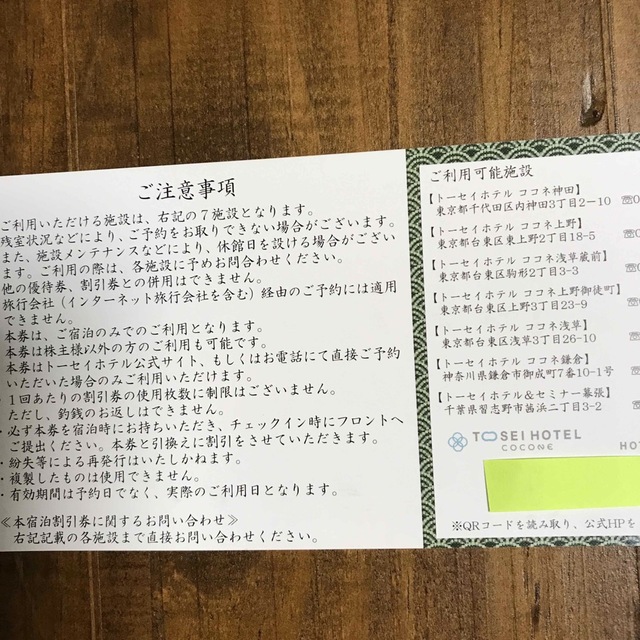 ご注意事項
ご利用いただける施設は、右記の7施設となります。
残室状況などにより、ご予約をお取りできない場合がございます。
また、施設メンテナンスなどにより、休館日を設ける場合がござい
ます。ご利用の際は、各施設に予めお問合わせください。
他の優待券、割引券との併用はできません。
旅行会社(インターネット旅行会社を含む)経由のご予約には適用
できません。
本券は、ご宿泊のみでのご利用となります。
本券は株主様以外の方のご利用も可能です。
本券はトーセイホテル公式サイト、もしくはお電話にて直接ご予約
いただいた場合のみご利用いただけます。
・1回あたりの割引券の使用枚数に制限はございません。
ただし、釣銭のお返しはできません。
・必ず本券を宿泊時にお持ちいただき、チェックイン時にフロントへ
ご提出ください。本券と引換えに割引をさせていただきます。
・紛失等による再発行はいたしかねます。
・複製したものは使用できません。
・有効期間は予約日でなく、実際のご利用日となります。
≪本宿泊割引券に関するお問い合わせ≫
右記記載の各施設まで直接お問い合わせください。
ご利用可能施設
【トーセイホテル ココネ神田】
東京都千代田区内神田3丁目2-10 ☏0
【トーセイホテル ココネ上野】
東京都台東区東上野2丁目18-5 ☏0
【トーセイホテル ココネ浅草蔵前】
東京都台東区駒形2丁目3-3 ☏0
【トーセイホテル ココネ上野御徒町】
東京都台東区上野3丁目23-9 ☏
【トーセイホテル ココネ浅草】
東京都台東区浅草3丁目26-10 ☏
【トーセイホテル ココネ鎌倉】
神奈川県鎌倉市御成町7番10-1号 ☏
【トーセイホテル&セミナー幕張】
千葉県習志野市茜浜二丁目3-2 ☏
TOSEI HOTEL
COCONE
HOT
※QRコードを読み取り、公式HPを